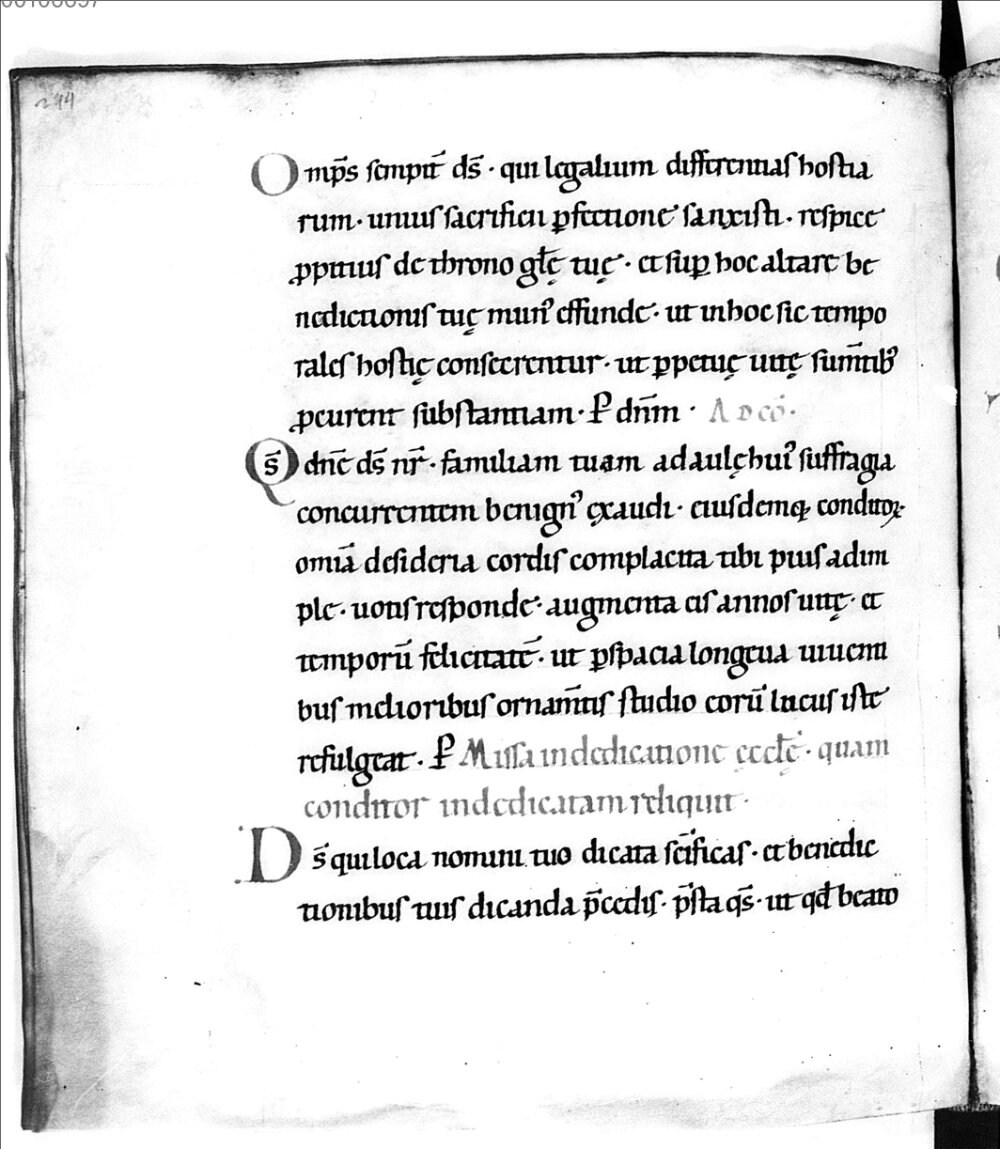 Omp̅s sempit̅ ds̅ · qui legalium differentias hostia
rum · unius sacrificii ꝑfectione sanxisti · respice
ꝓpitius de throno gl̅ę tuę · et suꝑ hoc altare be
nedictionis tuę mun᾿ effunde · ut in hoc sic tempo
rales hostię consecrentur · ut ꝑpetuę uitę sum̅tib᾿
ꝓcurent substantiam · P̲ dn̅m · A D CO̅ ·
Qs̅ dn̅e ds̅ nr̅ · familiam tuam ad aulę hui᾿ suffragia
concurrentem benign᾿ ęxaudi · eiusdemq; conditoꝝ
omia̅ desideria cordis complacita tibi pius adim
ple · uotis responde · augmenta eis annos uitę · et
temporu̅ felicitate̅ · ut ꝑ spacia longeua uiuenti
bus melioribus ornam̅tis studio eoru̅ locus iste
refulgeat · P̲ Missa in dedicatione ęccl̅ę · quam
conditor indedicatam reliquit ·
Ds̅ qui loca nomini tuo dicata sc̅ificas · et benedic
tionibus tuis dicanda p̅cedis · p̅sta qs̅ · ut qd̅ beato